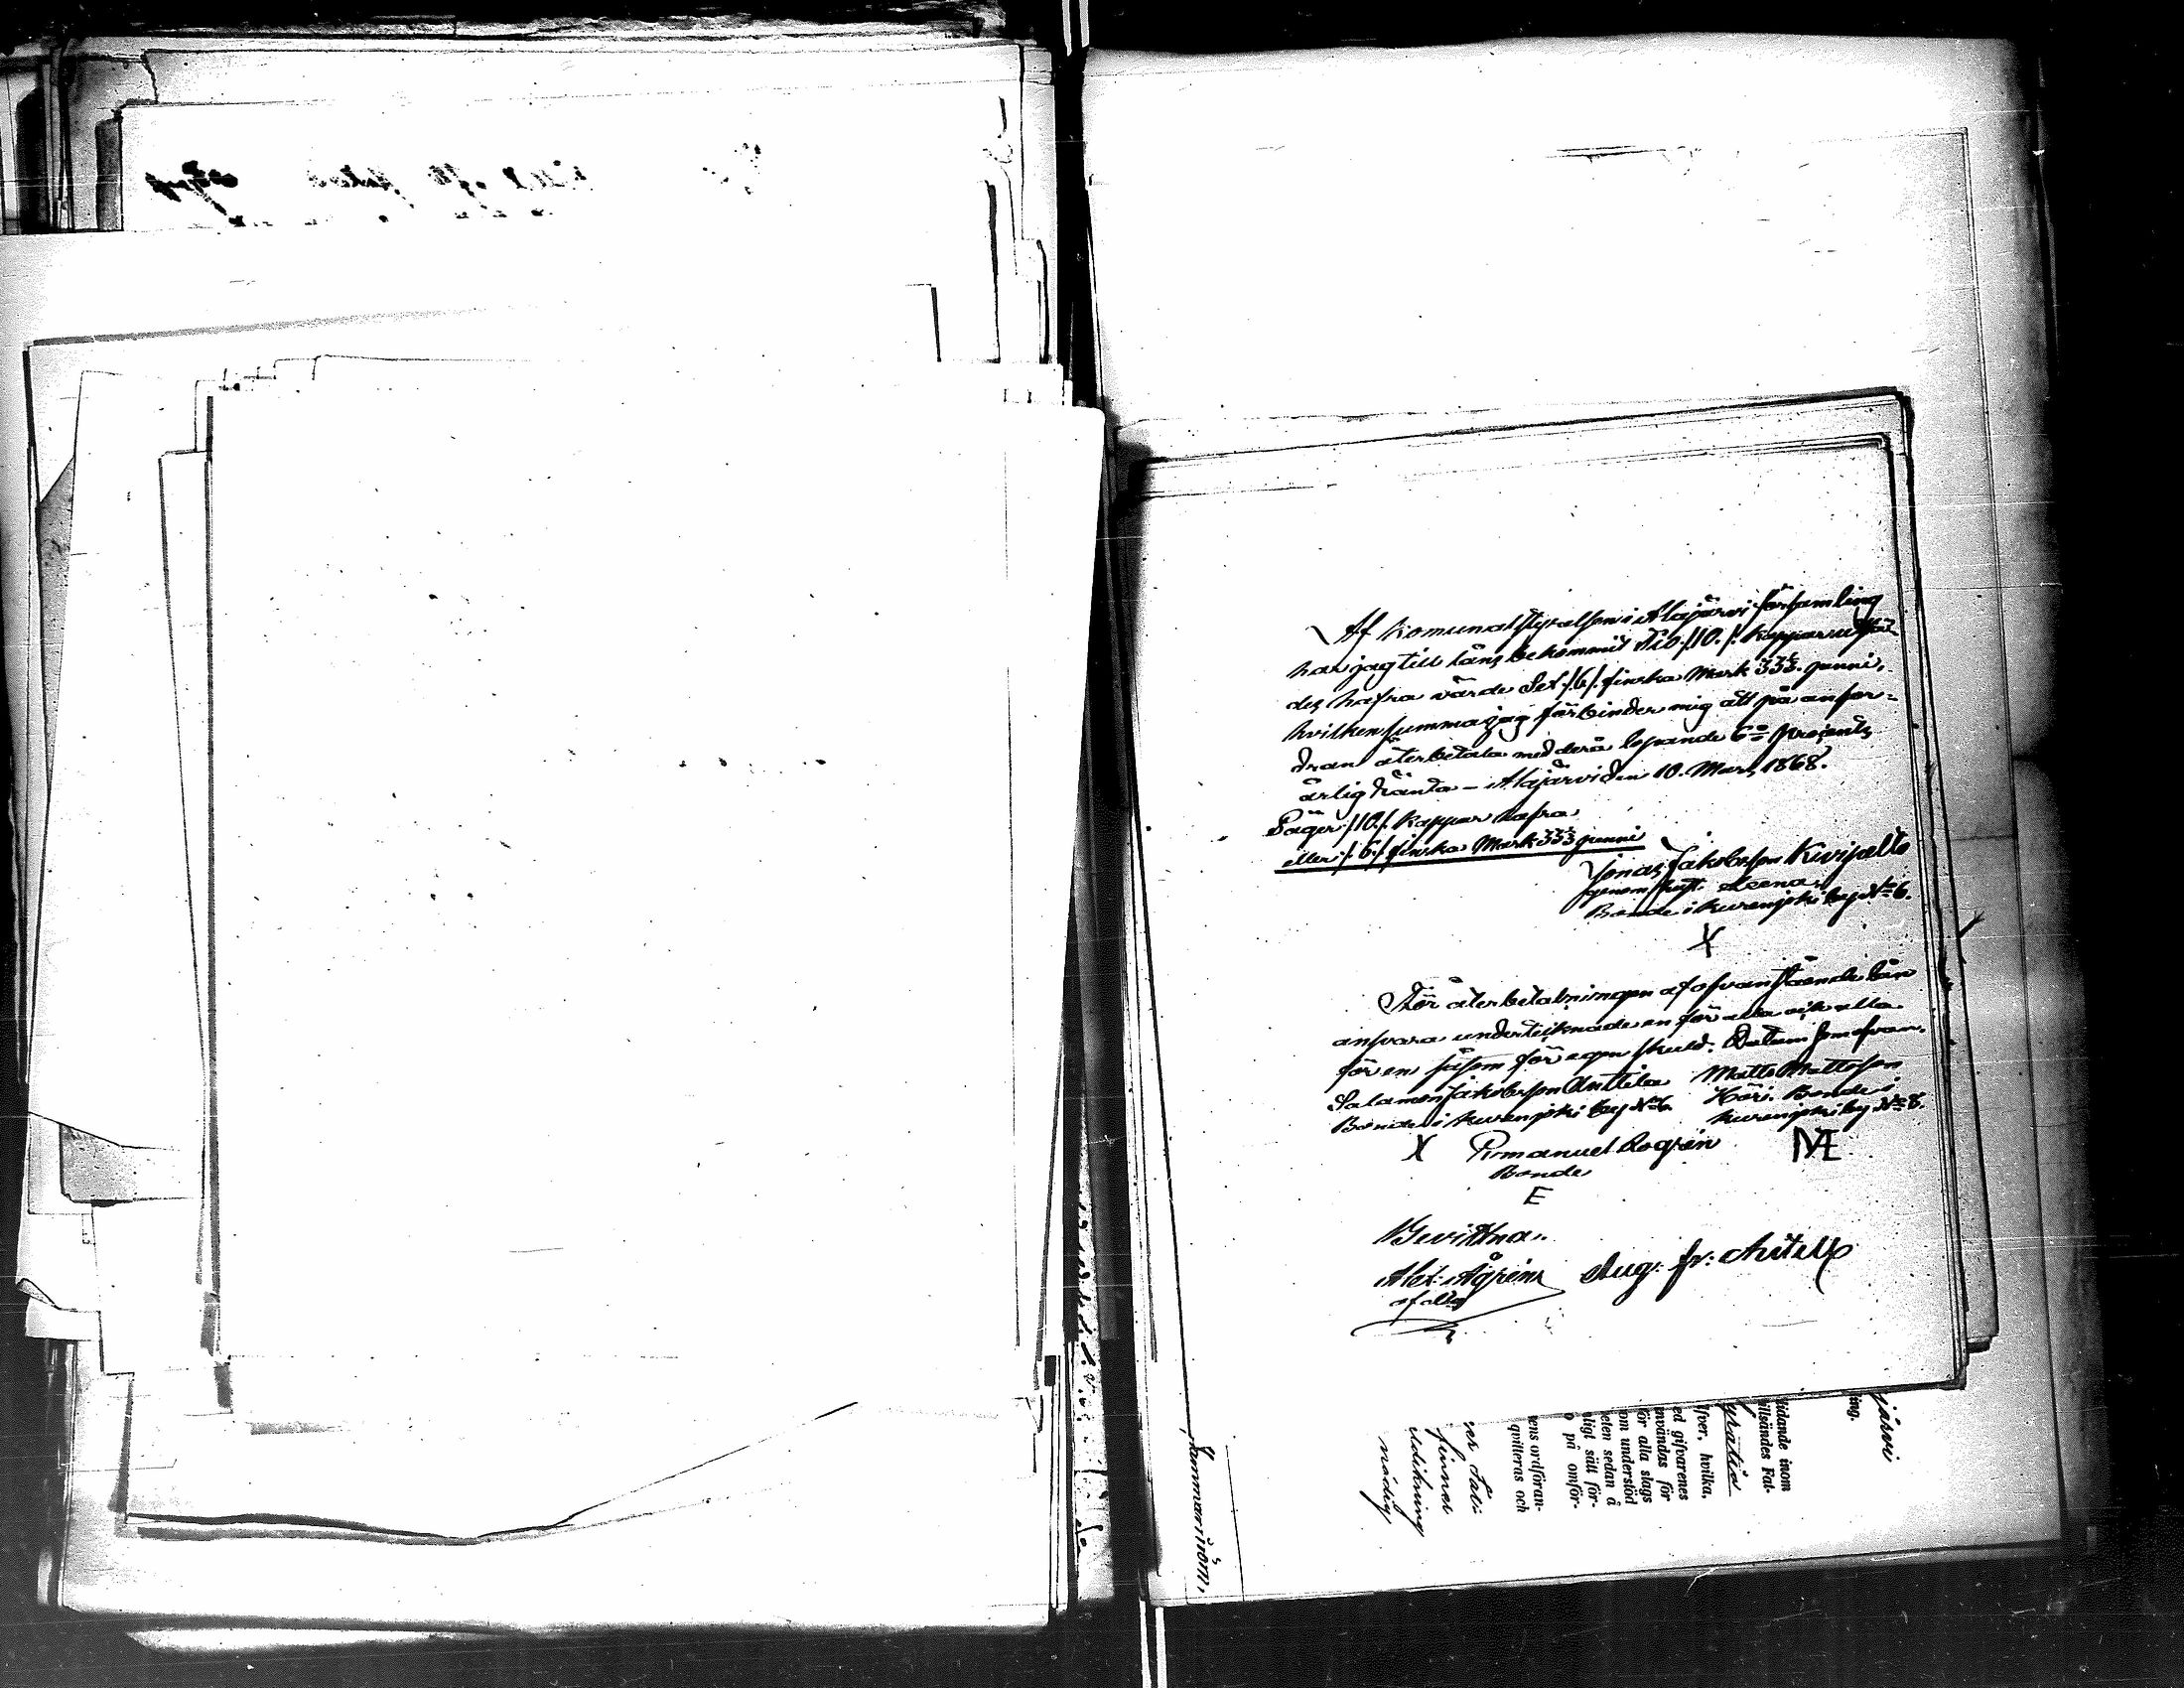 Af Komunalstyrelsen i Alajärvi församling
har jag till låns bekommit Tio /:10./: kappar utsä-
des hafra värde Sex /:6/: finska Mark 33⅓ penni,
hvilken summa jag förbinder mig att på anfor=
dran återbetala med derå löpande 6 procents
årlig ränta – Alajärvi den 10. Mars 1868.
Säger /:10./: kappar hafra
eller /:6:/ finska Mark 33⅓ penni
Jonas Jakobsson Kivipelto
genom hust. Leena
Bonde i Kurenjoki by No 6.
X
För återbetalningen af ofvanstående lån
ansvara undertecknade en för alla och alla
för en såsom för egen skuld. Datum som ofvan.
Salamon Jakobsson Anttila
Bonde i Kurenjoki by No 6.
Matts Mattsson
Höri. Bonde i
Kurenjoki by No 8.
X
Emanuel Rogren
Bonde
E
Bevittna:
Alex: Ågren
Aug: fr:
järvi
ing.
gidande inom
tillsändes Fat-
gratis
fver, hvilka,
ed gifvarenes
nvändas för
för alla slags
om understöd
elen sedan å
ligt sätt för-
på omför-
ens ordföran-
qvitteras och
finnes
nödig